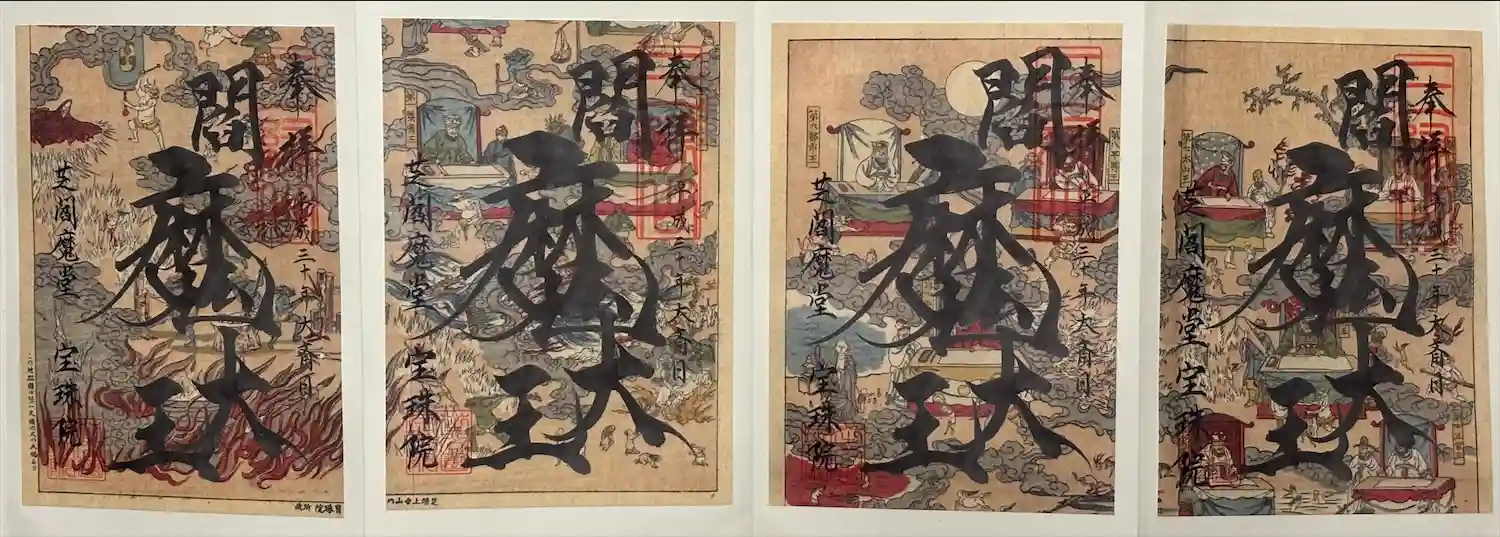 奉拝 平成三十年大斎日
閻魔大王
芝閻魔堂 宝珠院
奉拝 平成三十年大斎日
閻魔大王
芝閻魔堂 宝珠院
奉拝 平成三十年大斎日
閻魔大王
芝閻魔堂 宝珠院
芝増上寺山内
奉拝 平成三十年大斎日
閻魔大王
芝閻魔堂 宝珠院
寶珠院 所蔵